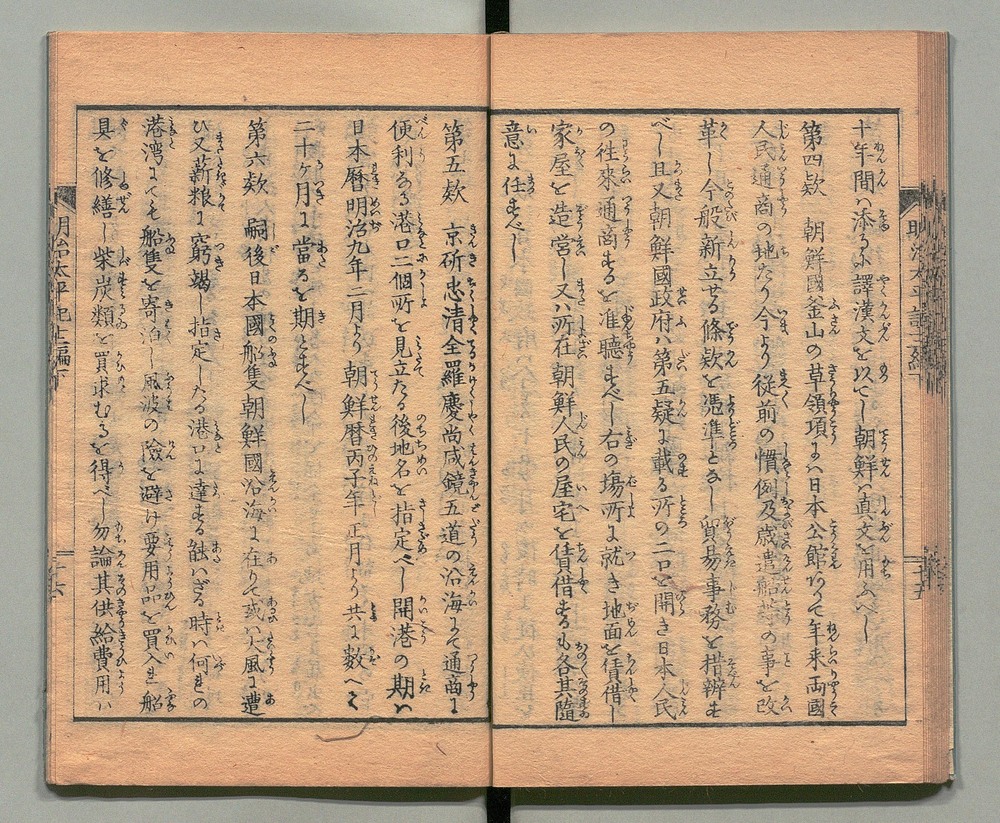 十年間ハ添るに譯漢文を以てし朝鮮ハ真文を用ふべし
第四欵 朝鮮國釜山の草領項にハ日本公館ありて年来両國
人民通商の地たり今より従前の慣例及歳遣船等の事を改
革し今般新立せる條欵を憑準となし貿易事務を措辦す
べし且又朝鮮國政府ハ第五欵に載る所の二口を開き日本人民
の往來通商するを准聽すべし右の場所に就き地面を賃借し
家屋を造営し又ハ所在朝鮮人民の屋宅を賃借するも各其隨
意に任すべし
第五欵 京圻忠清全羅慶尚咸鏡五道の沿海にて通商に
便利なる港口二個所を見立たる後地名を指定べし開港の期ハ
日本暦明治九年二月より朝鮮暦丙子年正月より共に数へて
二十ヶ月に當るを期とすべし
第六欵 嗣後日本國船隻朝鮮國沿海に在りて或ハ大風に遭
ひ又薪粮に窮竭し指定したる港口に達する能はざる時ハ何れの
港湾にても船隻を寄泊し風波の險を避け要用品を買入れ船
具を修繕し柴炭類を買求むるを得べし勿論其供給費用ハ
明治太平記上編下